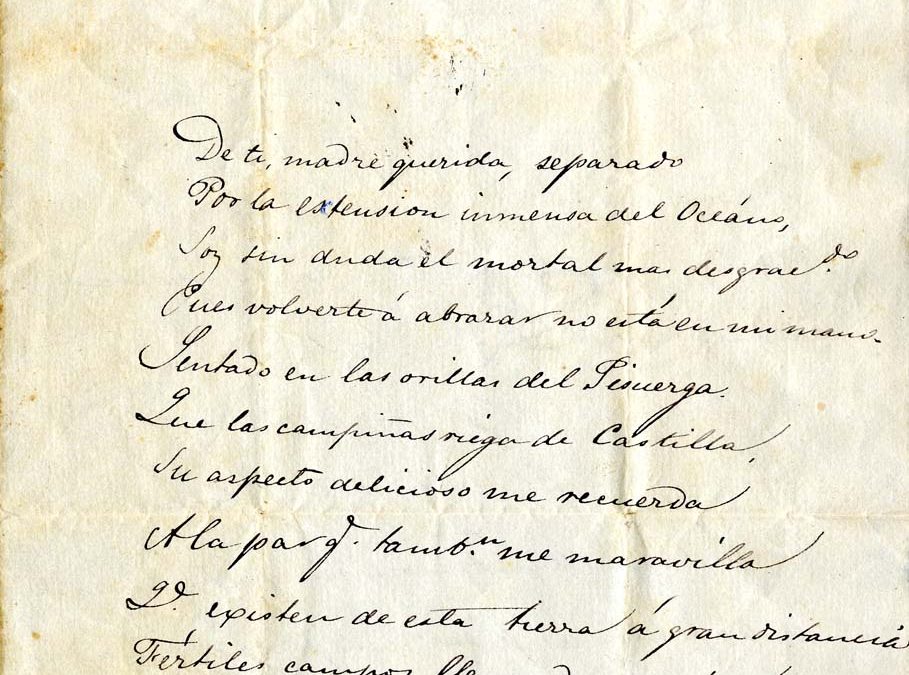 De ti, madre querida, separado
Por la extension inmensa del Océano,
Soy sin duda el mortal mas desgrac.do
Pues volverte á abrazar no está en mi mano.
Sentado en las orillas del Pisuerga.
Que las campiñas riega de Castilla,
Su aspecto delicioso me recuerda
A la par q.e tamb.n me maravilla
Q.e existen de esta tierra á gran distancia
Fértiles campos